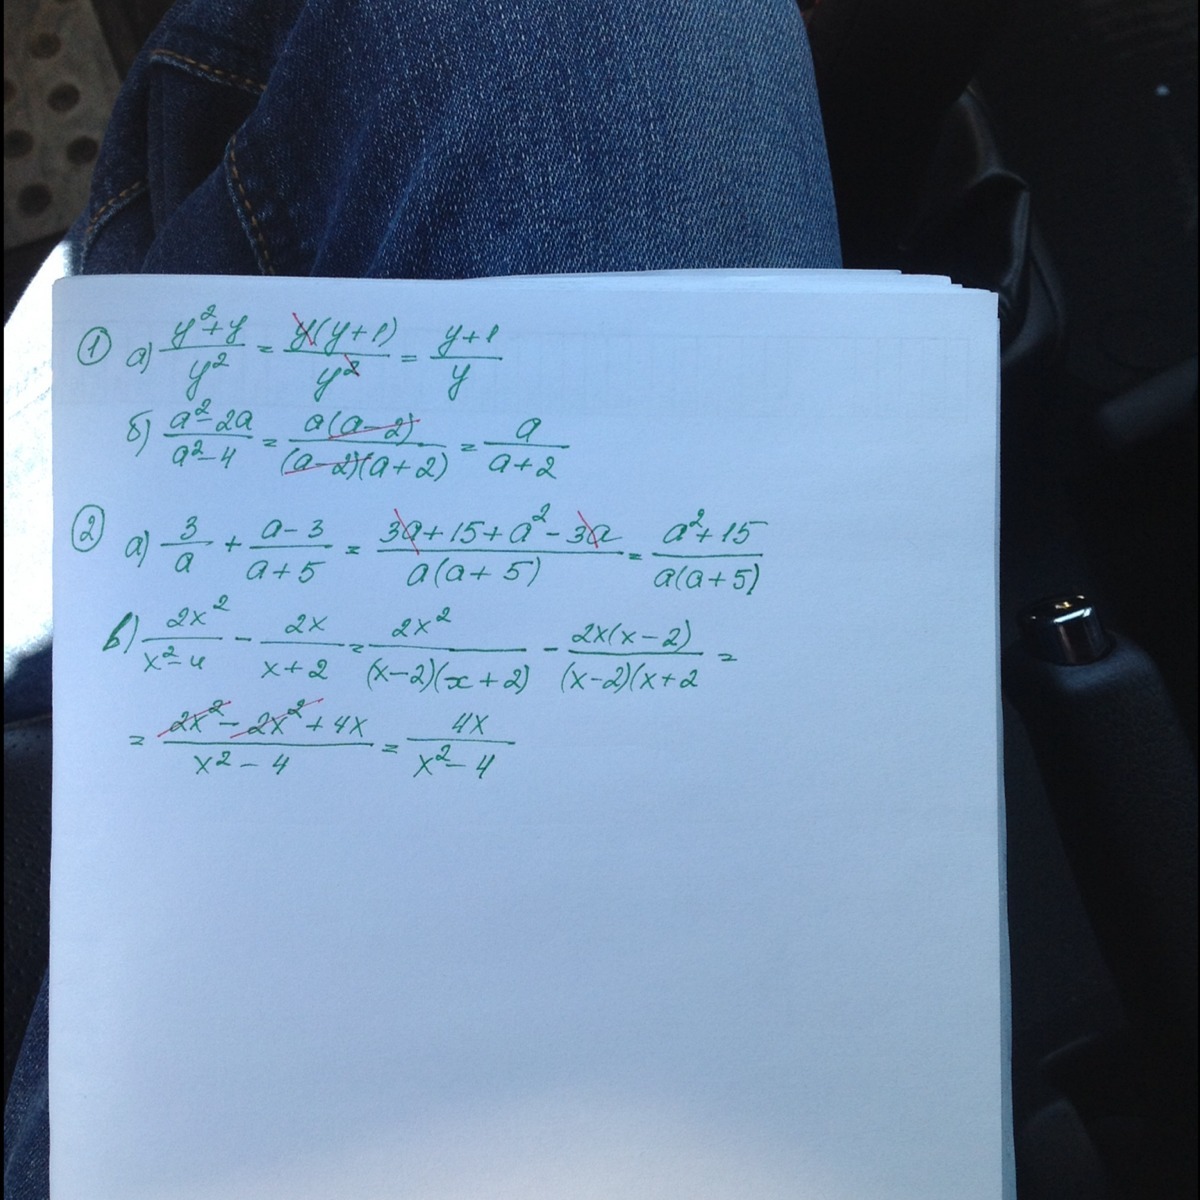 ① а) (y²+y)/y² = y(y+1)/y² = (y+1)/y
б) (a²-2a)/(a²-4) = a(a-2)/((a-2)(a+2)) = a/(a+2)
② а) 3/a + (a-3)/(a+5) = (3a+15+a²-3a)/(a(a+5)) = (a²+15)/(a(a+5))
в) 2x²/(x²-4) - 2x/(x+2) = 2x²/((x-2)(x+2)) - 2x(x-2)/((x-2)(x+2 =
= (2x²-2x²+4x)/(x²-4) = 4x/(x²-4)